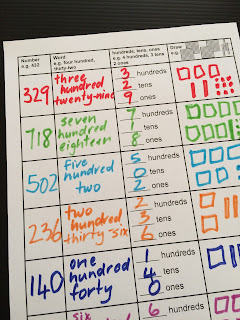 Number
e.g. 432
Word
e.g. four hundred,
thirty-two
hundreds, tens, ones
e.g. 4 hundreds, 3 tens
2 ones
Draw
e.g.
329
three
hundred
twenty-nine
3 hundreds
2 tens
9 ones
718
seven
hundred
eighteen
7 hundreds
1 tens
8 ones
502
five
hundred
two
5 hundreds
0 tens
2 ones
236
two
hundred
thirty-six
2 hundreds
3 tens
6 ones
140
one
hundred
forty
1 hundreds
4 tens
0 ones
six
6 hundreds